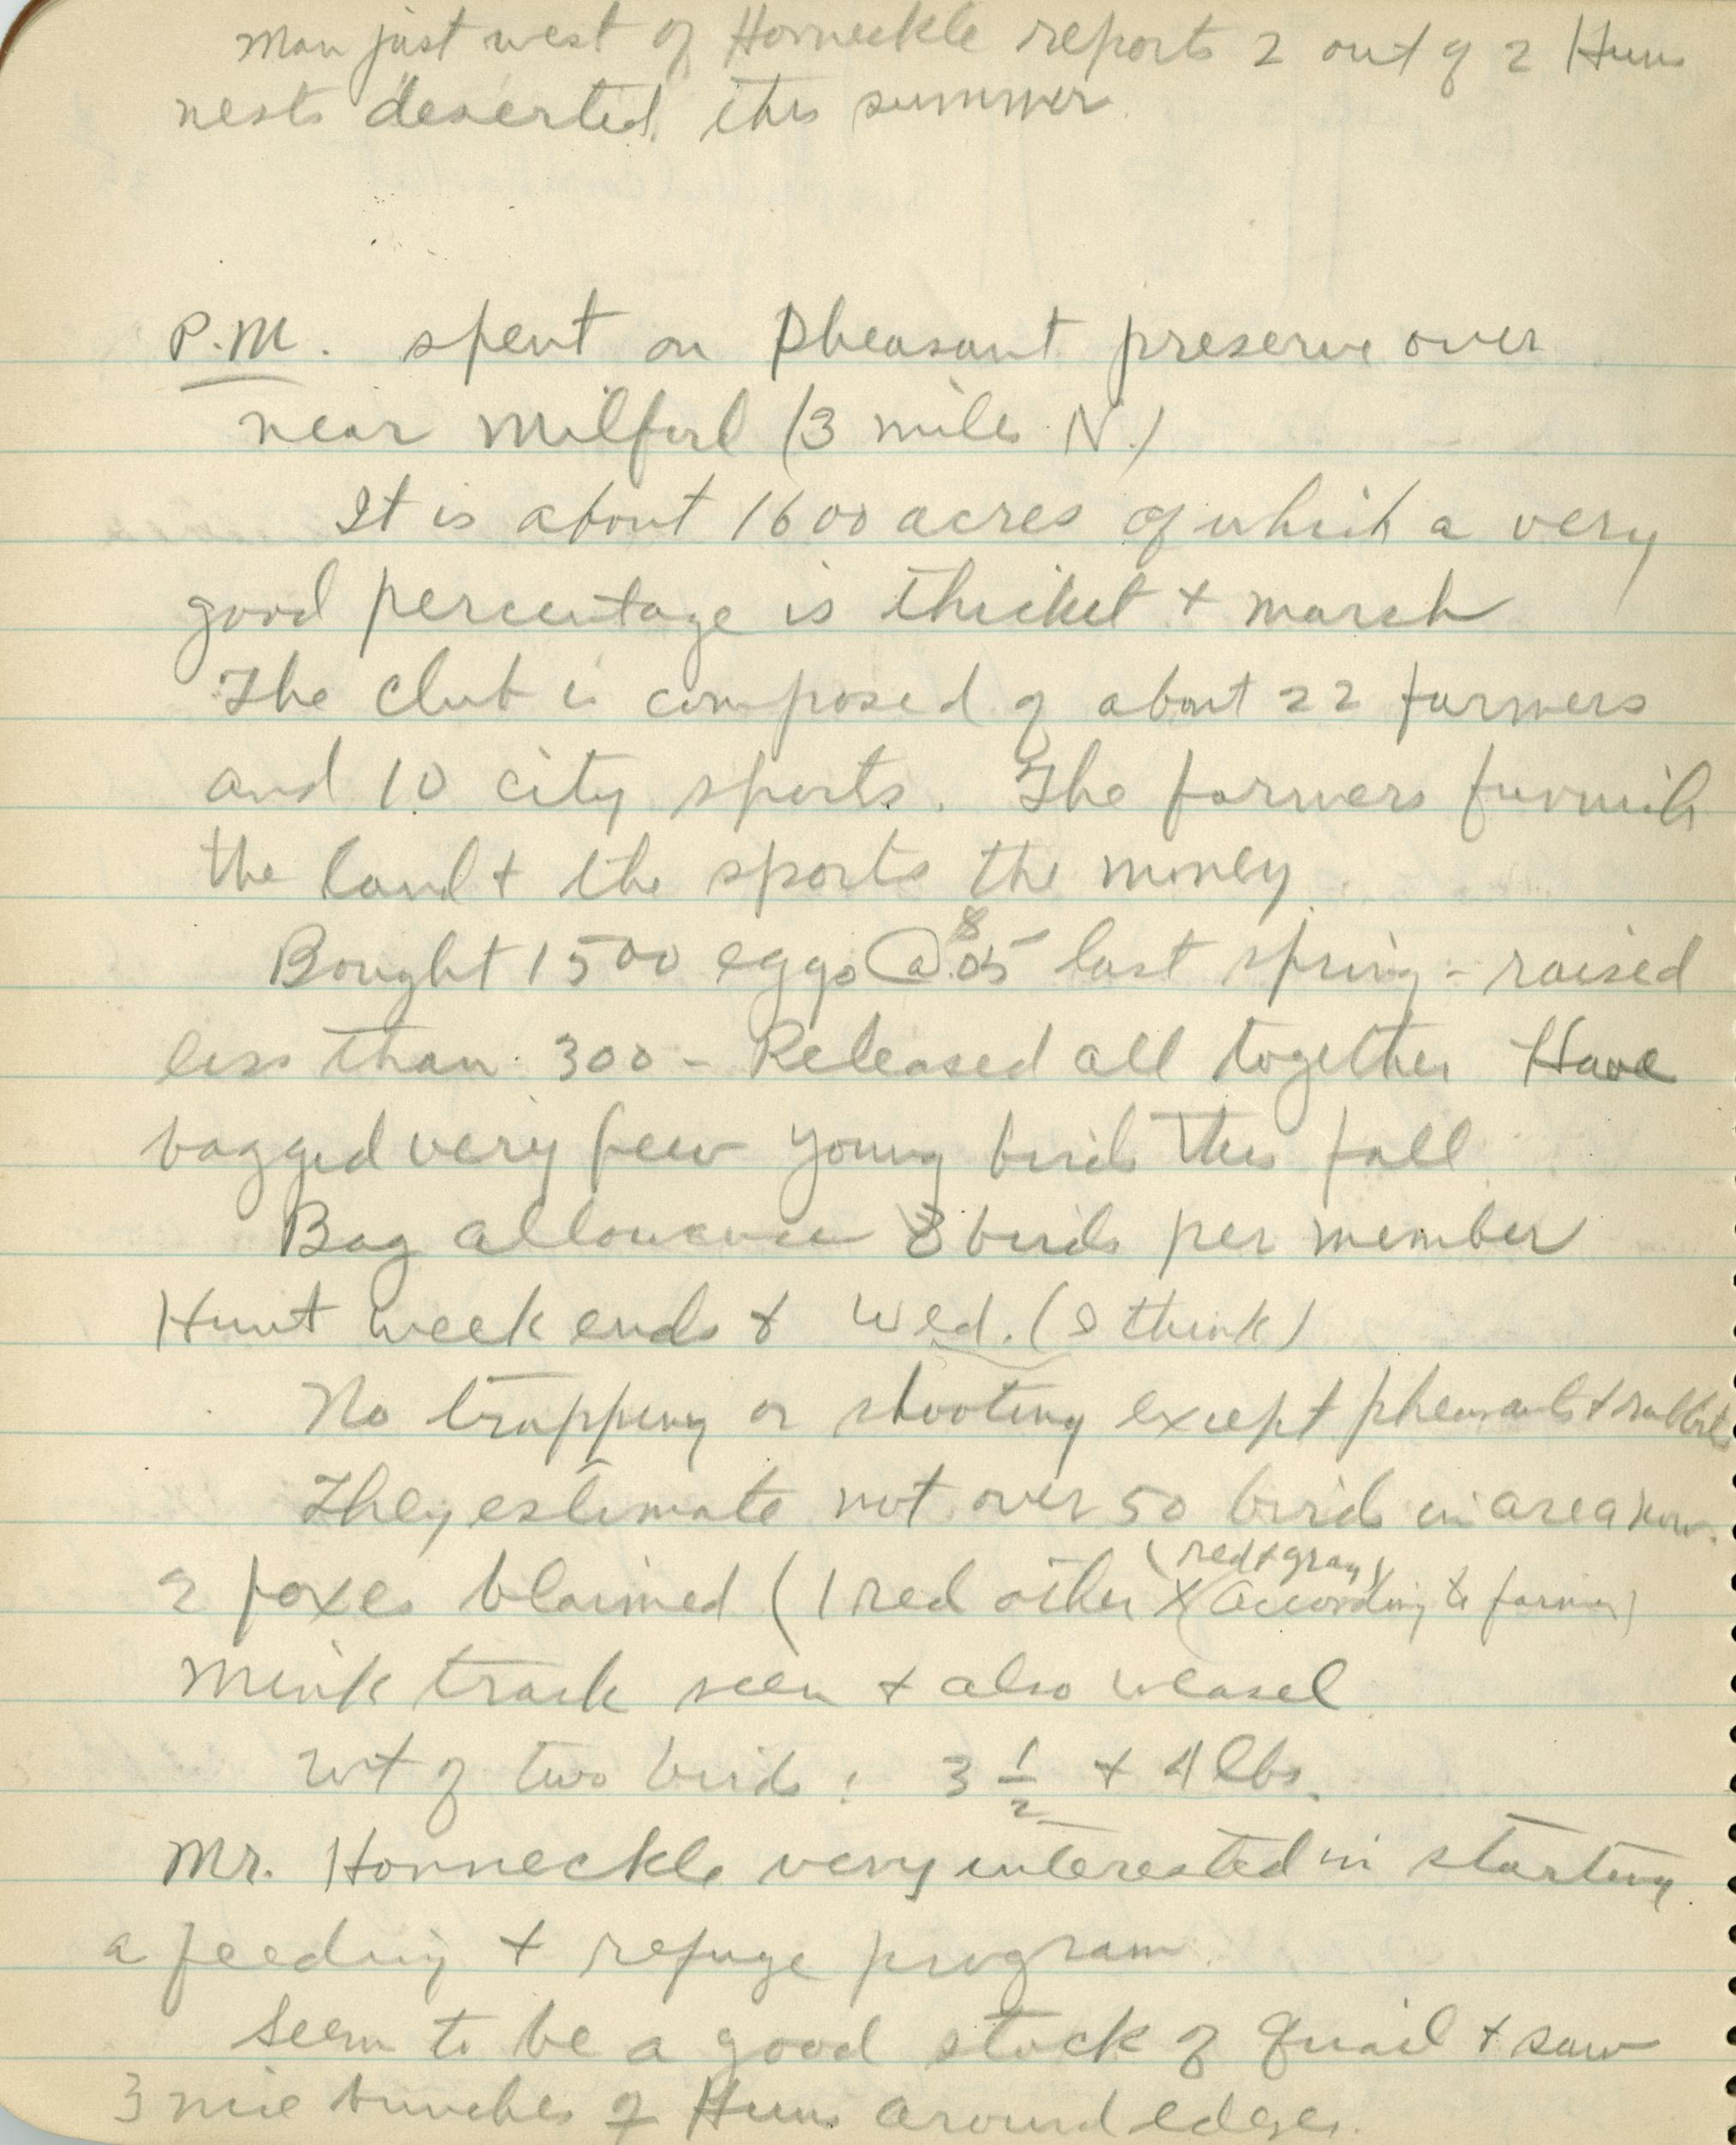 Man just west of Horneckle reports 2 out of 2 Hun
nests deserted this summer.
P.M. spent on Pheasant preserve over
near Milford (3 miles N.)
It is about 1600 acres of which a very
good percentage is thicket + marsh
The club is composed of about 22 farmers
and 10 city sports. The farmers furnish
the land + the sports the money.
Bought 1500 eggs @ .05 8 last spring - raised
less than 300 - Released all together Have
bagged very few young birds this fall
Bag allowance 8 birds per member
Hunt week ends & Wed. (I think)
No trapping or shooting except pheasants + rabbits
They estimate not over 50 birds in area now.
(red + gray)
2 foxes blamed (1 red other X (According to farmer)
Mink track seen + also weasel
Wt of two birds: 3 1/2 + 4 lbs.
Mr. Honneckle very interested in starting
a feeding + refuge program.
Seem to be a good stock of Quail + saw
3 nice bunches of Huns around edges.